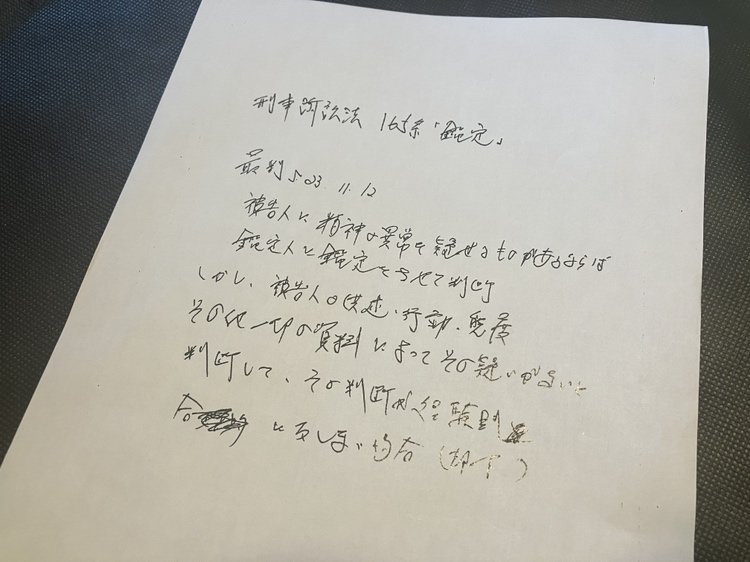 刑事訴訟法 165条「鑑定」
最判 S23. 11. 12
被告人に精神の異常を疑せるものがあるならば
鑑定人に鑑定をさせて判断
しかし、被告人の供述、行動、態度
その他一切の資料によってその疑いがないと
判断して、その判断が経験則
に反しない場合(却下)